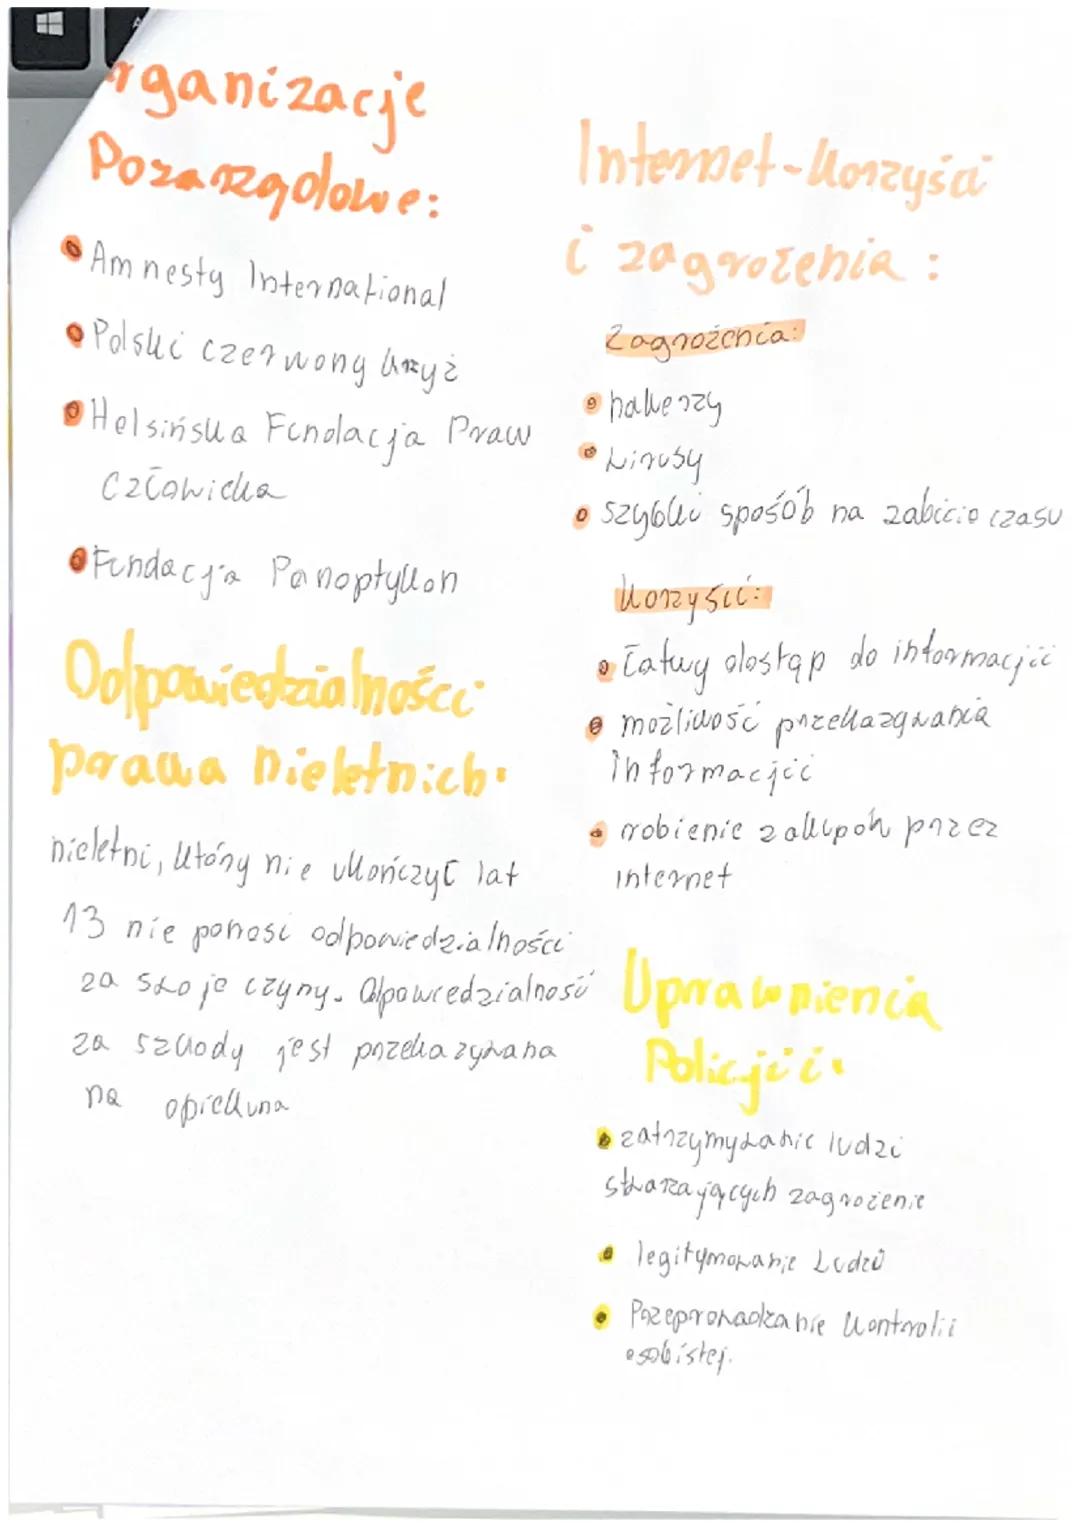 Organizacje
Pozarządowe:
Amnesty International
Polski czerwony krzyż
Helsińska Fundacja Praw
Człowieka
Fundacja Panoptykon
Odpowiedzialności
prawa nieletnich:
nieletni, który nie ukończył lat
13 nie ponosi odpowiedzialności
za swoje czyny. Odpowiedzialność
za szkody jest przekazywana
na opiekuna
Internet-korzyści
i zagrożenia:
Zagrożenia:
hakerzy
wirusy
szybki sposób na zabicie czasu
korzyści:
łatwy dostęp do informacji
możliwość przekazywania
informacji
robienie zakupów przez
internet
Uprawnienia
Policji:
zatrzymywanie ludzi
stwarzających zagrożenie
legitymowanie ludzi
Przeprowadzanie kontroli
osobistej.